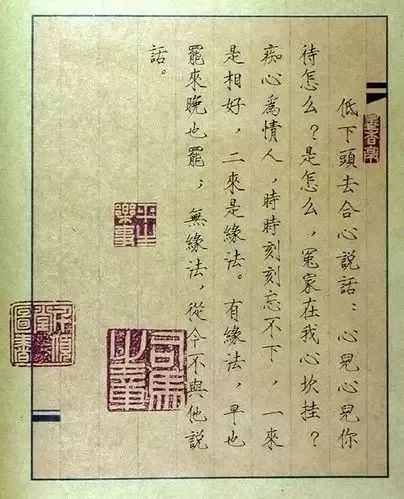 低下頭去合心説話：心兒心兒你
待怎么？是怎么，冤家在我心坎挂？
痴心爲憒人，時時刻刻忘不下，一來
是相好，二來是緣法。有緣法，早也
罷來晚也罷；無緣法，從今不與他説
話。
平生樂事
司馬之章